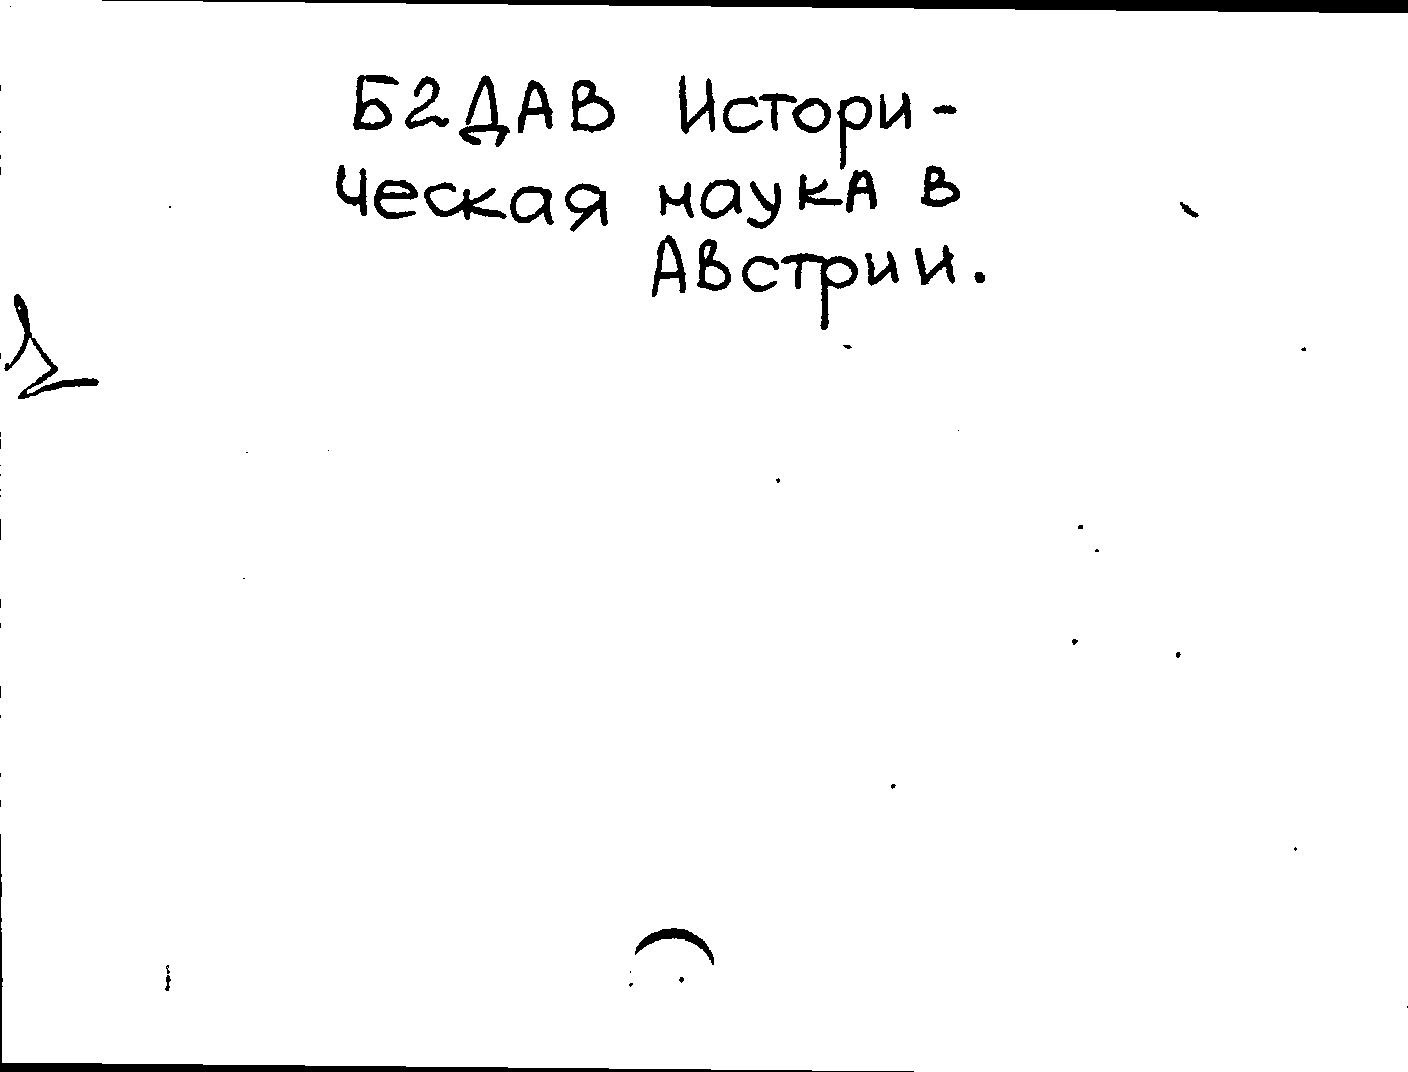 Б2ДАВ Истори-
ческая наука в
Австрии.